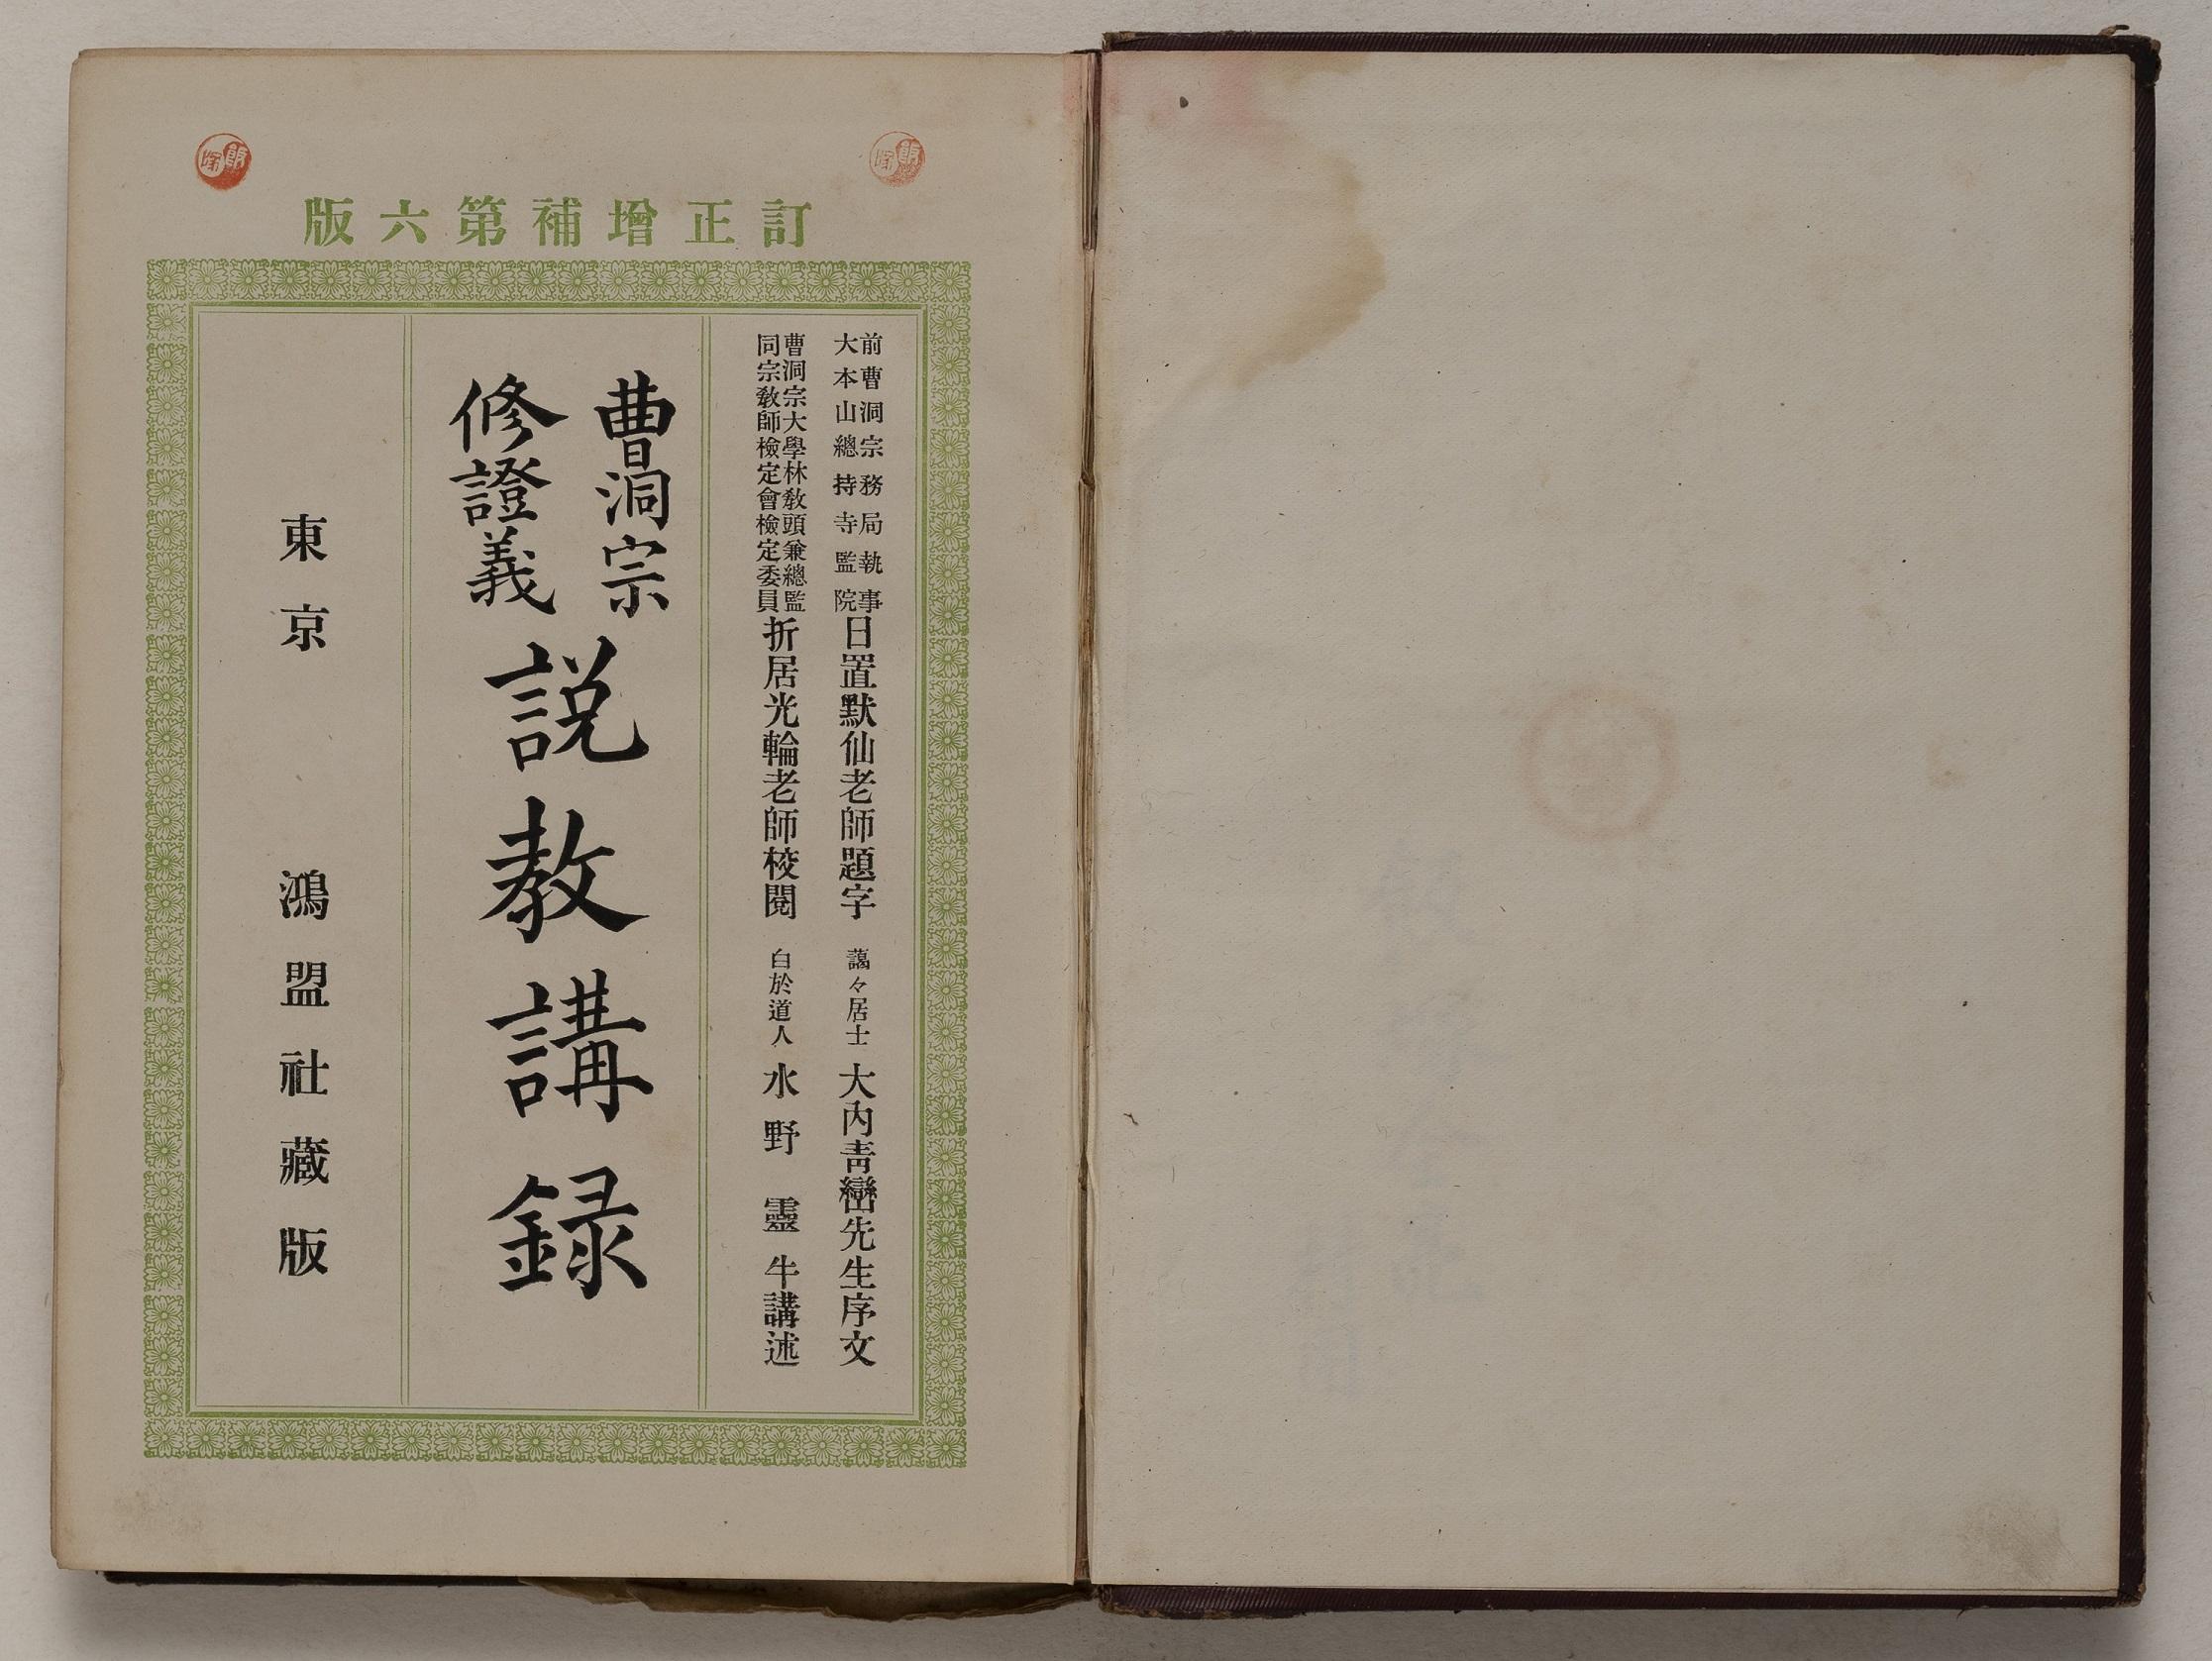 訂正增補第六版
前曹洞宗務局執事
大本山總持寺監院
日置默仙老師題字
藹々居士 大內靑巒先生序文
曹洞宗大學林敎頭兼總監
同宗敎師檢定會檢定委員
折居光輪老師校閱
白於道人 水野靈牛講述
曹洞宗
修證義
説敎講録
東京 鴻盟社藏版
飯塚
飯塚